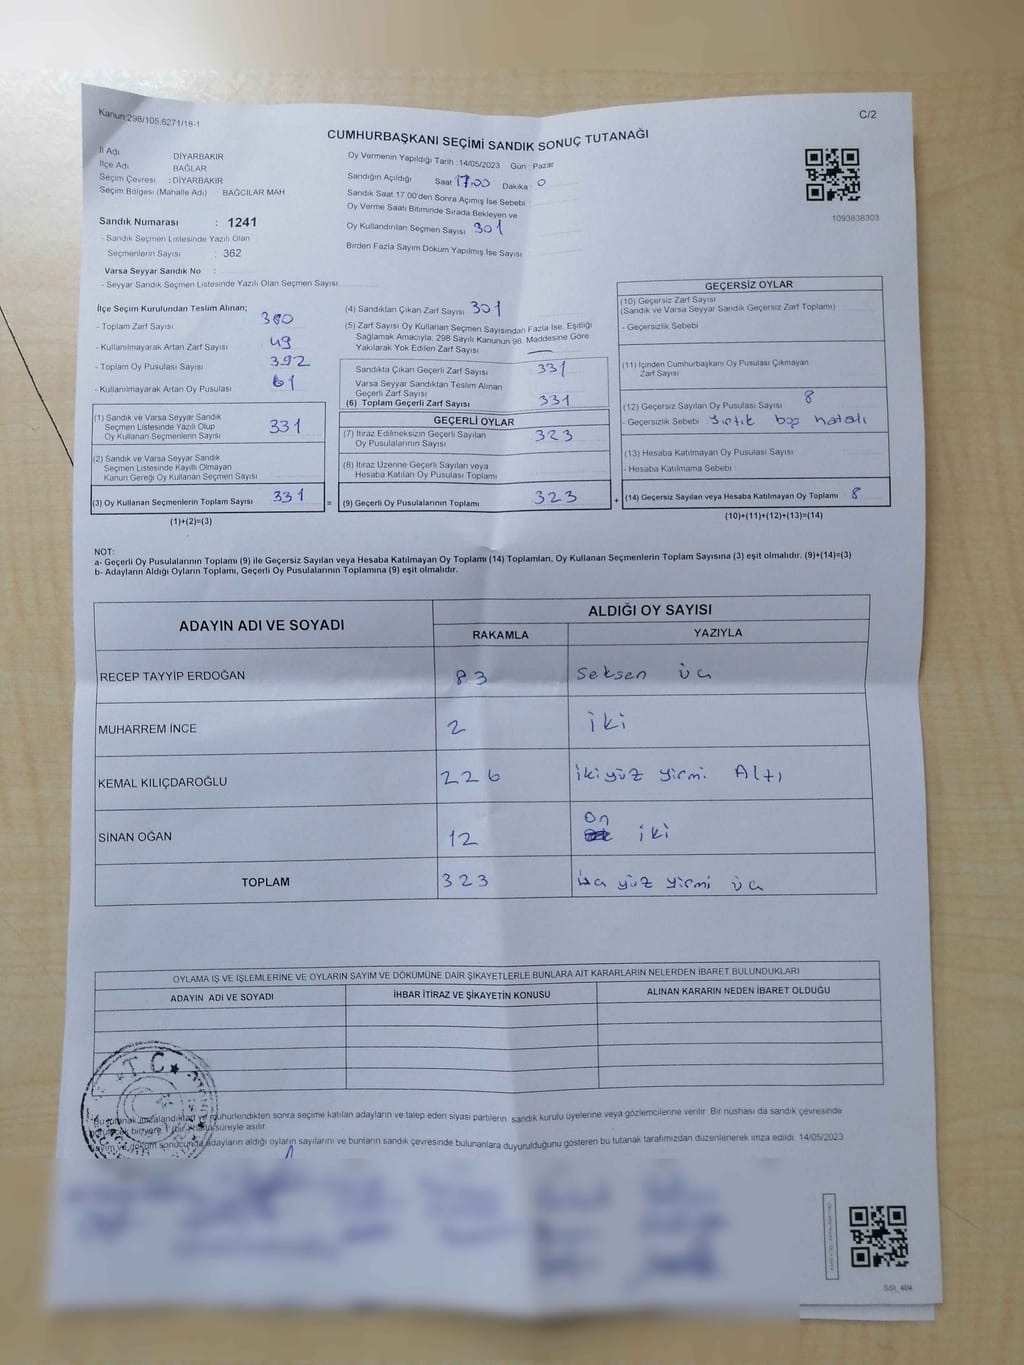 Kanun:298/105,6271/18-1
C/2
CUMHURBAŞKANI SEÇİMİ SANDIK SONUÇ TUTANAĞI
İl Adı DİYARBAKIR
İlçe Adı BAĞLAR
Seçim Çevresi : DİYARBAKIR
Seçim Bölgesi (Mahalle Adı) BAĞCILAR MAH
Sandık Numarası : 1241
- Sandık Seçmen Listesinde Yazılı Olan
Seçmenlerin Sayısı : 362
Varsa Seyyar Sandık No :
- Seyyar Sandık Seçmen Listesinde Yazılı Olan Seçmen Sayısı:
Oy Vermenin Yapıldığı Tarih : 14/05/2023 Gün : Pazar
Sandığın Açıldığı Saat 17.00 Dakika 0
Sandık Saat 17:00'den Sonra Açımış İse Sebebi
Oy Verme Saati Bitiminde Sırada Bekleyen ve
Oy Kullandırılan Seçmen Sayısı 301
Birden Fazla Sayım Döküm Yapılmış İse Sayısı
1093838303
İlçe Seçim Kurulundan Teslim Alınan;
- Toplam Zarf Sayısı 380
- Kullanılmayarak Artan Zarf Sayısı 49
- Toplam Oy Pusulası Sayısı 392
- Kullanılmayarak Artan Oy Pusulası 61
(1) Sandık ve Varsa Seyyar Sandık
Seçmen Listesinde Yazılı Olup
Oy Kullanan Seçmenlerin Sayısı 331
(2) Sandık ve Varsa Seyyar Sandık
Seçmen Listesinde Kayıtlı Olmayan
Kanun Gereği Oy Kullanan Seçmen Sayısı
(3) Oy Kullanan Seçmenlerin Toplam Sayısı 331 =
(1)+(2)=(3)
(4) Sandıktan Çıkan Zarf Sayısı 301
(5) Zarf Sayısı Oy Kullanan Seçmen Sayısından Fazla İse, Eşitliği
Sağlamak Amacıyla; 298 Sayılı Kanunun 98. Maddesine Göre
Yakılarak Yok Edilen Zarf Sayısı —
Sandıkta Çıkan Geçerli Zarf Sayısı 331
Varsa Seyyar Sandıktan Teslim Alınan
Geçerli Zarf Sayısı
(6) Toplam Geçerli Zarf Sayısı 331
GEÇERLİ OYLAR
(7) İtiraz Edilmeksizin Geçerli Sayılan
Oy Pusulalarının Sayısı 323
(8) İtiraz Üzerine Geçerli Sayılan veya
Hesaba Katılan Oy Pusulası Toplamı
(9) Geçerli Oy Pusulalarının Toplamı 323 +
GEÇERSİZ OYLAR
(10) Geçersiz Zarf Sayısı
(Sandık ve Varsa Seyyar Sandık Geçersiz Zarf Toplamı)
- Geçersizlik Sebebi
(11) İçinden Cumhurbaşkanı Oy Pusulası Çıkmayan
Zarf Sayısı
(12) Geçersiz Sayılan Oy Pusulası Sayısı 8
- Geçersizlik Sebebi Yırtık boş hatalı
(13) Hesaba Katılmayan Oy Pusulası Sayısı
- Hesaba Katılmama Sebebi
(14) Geçersiz Sayılan veya Hesaba Katılmayan Oy Toplamı 8
(10)+(11)+(12)+(13)=(14)
NOT:
a- Geçerli Oy Pusulalarının Toplamı (9) ile Geçersiz Sayılan veya Hesaba Katılmayan Oy Toplamı (14) Toplamları, Oy Kullanan Seçmenlerin Toplam Sayısına (3) eşit olmalıdır. (9)+(14)=(3)
b- Adayların Aldığı Oyların Toplamı, Geçerli Oy Pusulalarının Toplamına (9) eşit olmalıdır.
ADAYIN ADI VE SOYADI
ALDIĞI OY SAYISI
RAKAMLA YAZIYLA
RECEP TAYYİP ERDOĞAN 83 Seksen üç
MUHARREM İNCE 2 iki
KEMAL KILIÇDAROĞLU 226 ikiyüz yirmi Altı
SİNAN OĞAN 12 On iki
TOPLAM 323 üç yüz yirmi üç
OYLAMA İŞ VE İŞLEMLERİNE VE OYLARIN SAYIM VE DÖKÜMÜNE DAİR ŞİKAYETLERLE BUNLARA AİT KARARLARIN NELERDEN İBARET BULUNDUKLARI
ADAYIN ADI VE SOYADI İHBAR İTİRAZ VE ŞİKAYETİN KONUSU ALINAN KARARIN NEDEN İBARET OLDUĞU
T.C.
Bu tutanak imzalandıktan ve mühürlendikten sonra seçime katılan adayların ve talep eden siyasi partilerin sandık kurulu üyelerine veya gözlemcilerine verilir. Bir nüshası da sandık çevresinde
süreyle asılır
sonucunda adayların aldığı oyların sayılarını ve bunların sandık çevresinde bulunanlara duyurulduğunu gösteren bu tutanak tarafımızdan düzenlenerek imza edildi. 14/05/2023
SSI_404